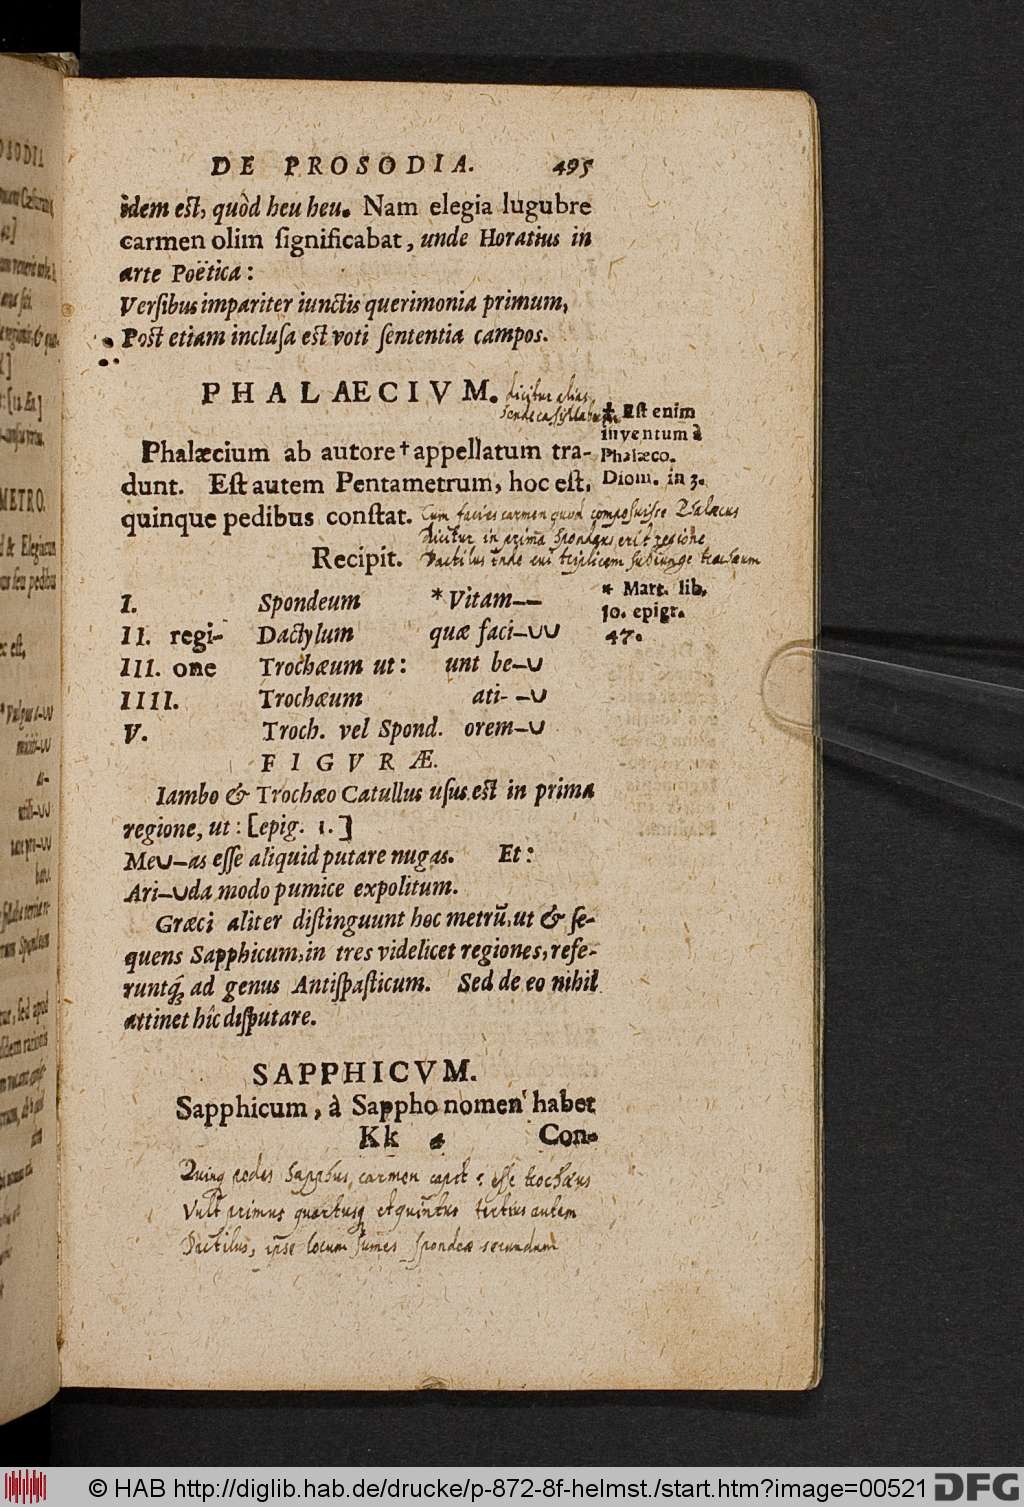 DE PROSODIA. 495
idem est, quòd heu heu. Nam elegia lugubre
carmen olim significabat, unde Horatius in
arte Poëtica:
Versibus impariter iunctis querimonia primum,
Post etiam inclusa est voti sententia campos.
PHALAECIVM.
dicitur alias
Hendecasyllabum
† Est enim
inventum à
Phalæco.
Diom. in 3.
Phalæcium ab autore † appellatum tra-
dunt. Est autem Pentametrum, hoc est,
quinque pedibus constat.
Cum facies carmen quod composuisse Phalæcus
dicitur in prima Spondæus erit regione
Dactilus inde cui triplicem subiunge trochæum
Recipit.
I. Spondeum * Vitam——
II. regi- Dactylum quæ faci—∪∪
III. one Trochæum ut: unt be—∪
IIII. Trochæum ati- —∪
V. Troch. vel Spond. orem—∪
* Mart. lib.
10. epigr.
47.
FIGVRÆ.
Iambo & Trochæo Catullus usus est in prima
regione, ut: [epig. 1.]
Me∪—as esse aliquid putare nugas. Et:
Ari—∪da modo pumice expolitum.
Græci aliter distinguunt hoc metrū, ut & se-
quens Sapphicum, in tres videlicet regiones, refe-
runtq́; ad genus Antispasticum. Sed de eo nihil
attinet hîc disputare.
SAPPHICVM.
Sapphicum, à Sappho nomen habet
Kk 4 Con-
Quinq pedes Sapphus carmen capit: esse trochæus
Vult primus quartusq et quintus tertius autem
Dactilus, ipse locum sumes spondeæ secundum
© HAB http://diglib.hab.de/drucke/p-872-8f-helmst./start.htm?image=00521
DFG